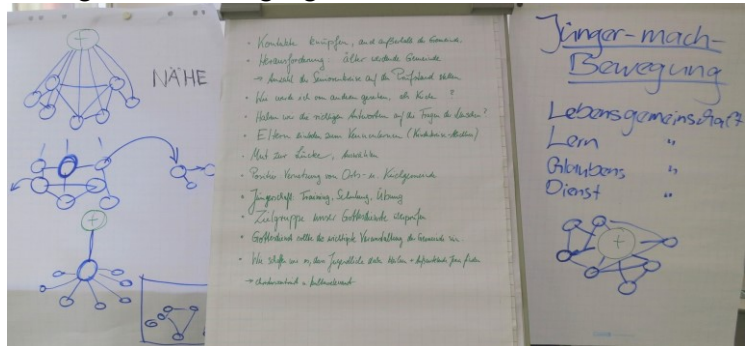 NÄHE
• Kontakte knüpfen, auch außerhalb der Gemeinde.
• Herausforderung: älter werdende Gemeinde
→ Anzahl der Seniorenkreise auf den Prüfstand stellen
• Wie werde ich von anderen gesehen, als Kirche?
• Haben wir die richtigen Antworten auf die Fragen der Leute?
• Eltern einladen zum Kennenlernen
• Mut zur Lücke, 
• Positive Vernetzung von Orts- u. Kirchgemeinde
• Jüngerschaft: Training, Schulung, Übung
• Zielgruppe unser Gottesdienste überprüfen
• Gottesdienst sollte die wichtigste Veranstaltung der Gemeinde sein.
• Wie schaffen wir es, dass Jugendliche
→
Jünger-mach-
Bewegung
Lebensgemeinschaft
Lern "
Glaubens "
Dienst "